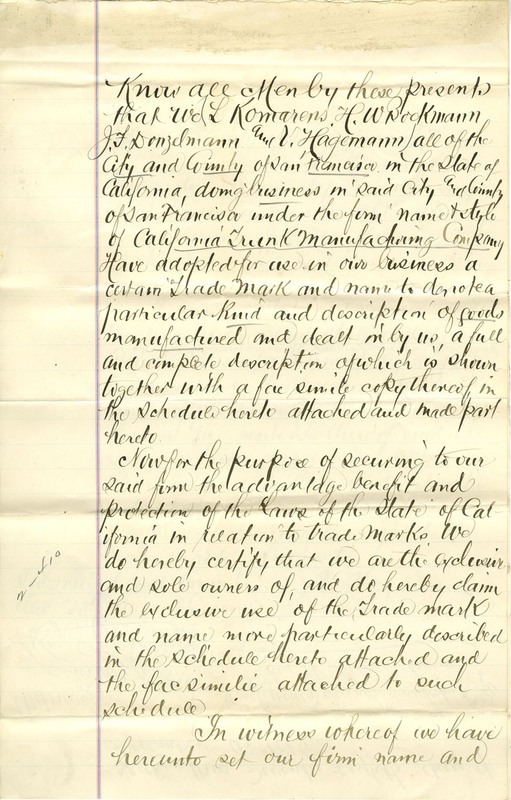 Know all Men by these presents
that We L Komarens, H. W Bockmann
J. F. Donzelmann and V. Hagemann all of the
City and County of San Francisco in the State of
California, doing business in said City and County
of San Francisco under the firm name & style
of California Trunk Manufacturing Company
Have adopted for use in our business a
certain Trade Mark and name to denote a
particular kind and description of goods
manufactured and dealt in by us, a full
and complete description of which is shown
together with a fac simile copy thereof in
the schedule hereto attached and made part
hereto.
Now for the purpose of securing to our
said firm the advantage benefit and
protection of the Laws of the State of Cal-
ifornia in relation to trade marks, We
do hereby certify that we are the exclusive
and sole owners of, and do hereby claim
the exclusive use of the Trade mark
and name more particularly described
in the schedule hereto attached and
the fac similie attached to such
schedule
In witness whereof we have
hereunto set our firm name and